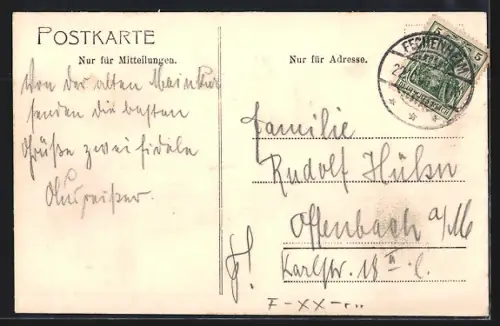 POSTKARTE
Nur für Mitteilungen.
Nur für Adresse.
5 5
FECHENHEIM
Von der alten Mainkur
senden die besten
Grüße zwei fidele
Ausreißer.
Familie
Rudolf Hühn
Offenbach a/M
Karlstr. 18 II l.
F-XX-